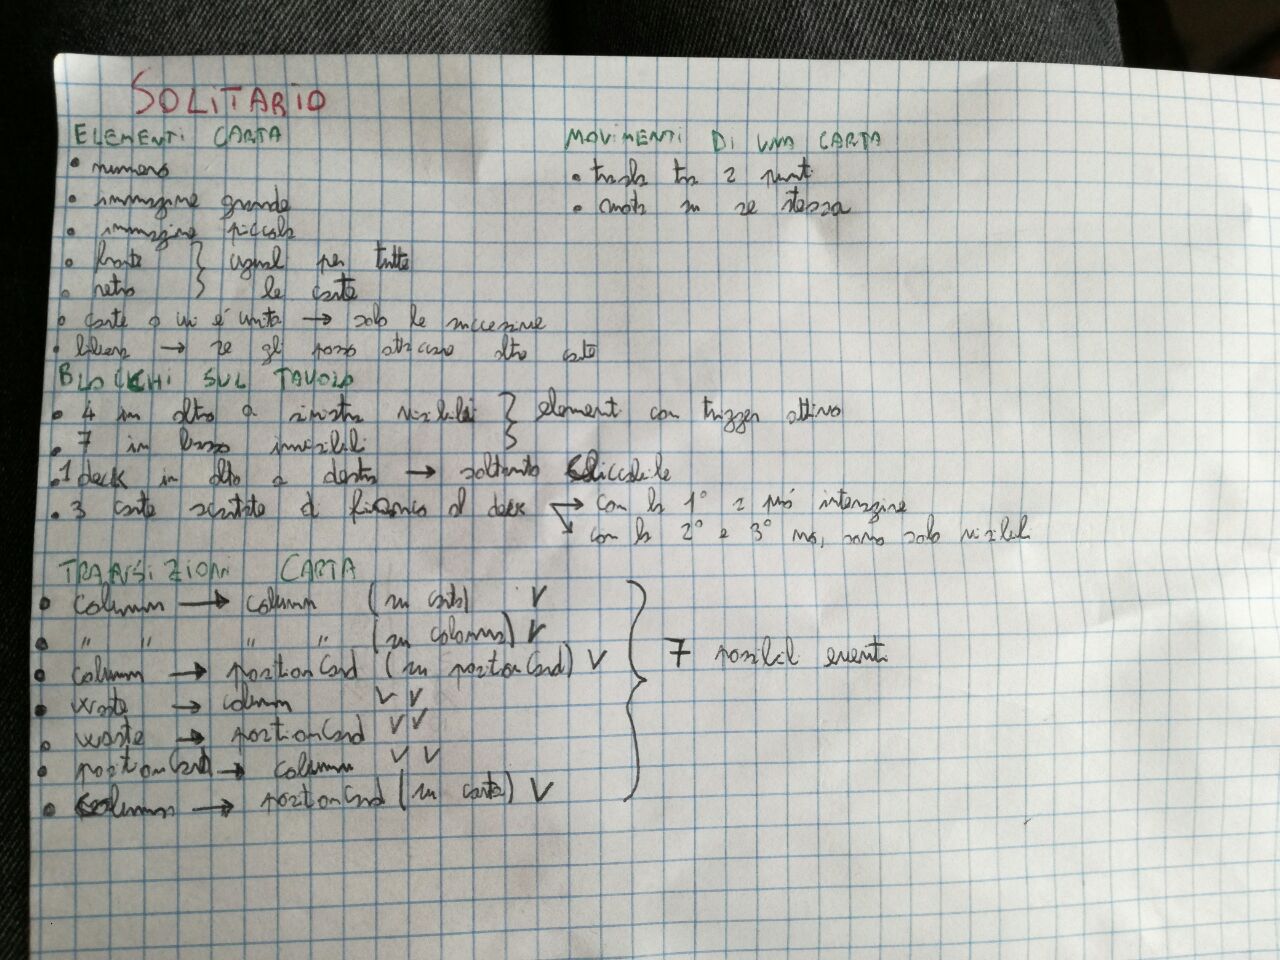 SOLITARIO
ELEMENTI CARTA
• numero
• immagine grande
• immagine piccola
• fronte } uguali per tutte
• retro } le carte
• carte a cui è unita → solo le successive
• libera → se gli posso attaccare altre carte
MOVIMENTI DI UNA CARTA
• trasla tra 2 punti
• ruota su se stessa
BLOCCHI SUL TAVOLO
• 4 in alto a sinistra visibili } elementi con trigger attivo
• 7 in basso invisibili
• 1 deck in alto a destra → soltanto cliccabile
• 3 carte scartate di fianco al deck → con la 1° si può interagire
→ con la 2° e 3° no, sono solo visibili
TRANSIZIONI CARTA
• column → column (su carta) V
• " " " " (su colonna) V
• column → positionCard (su positionCard) V
• waste → column V V
• waste → positionCard V V
• positionCard → column V V
• column → positionCard (su carta) V
} 7 possibili eventi